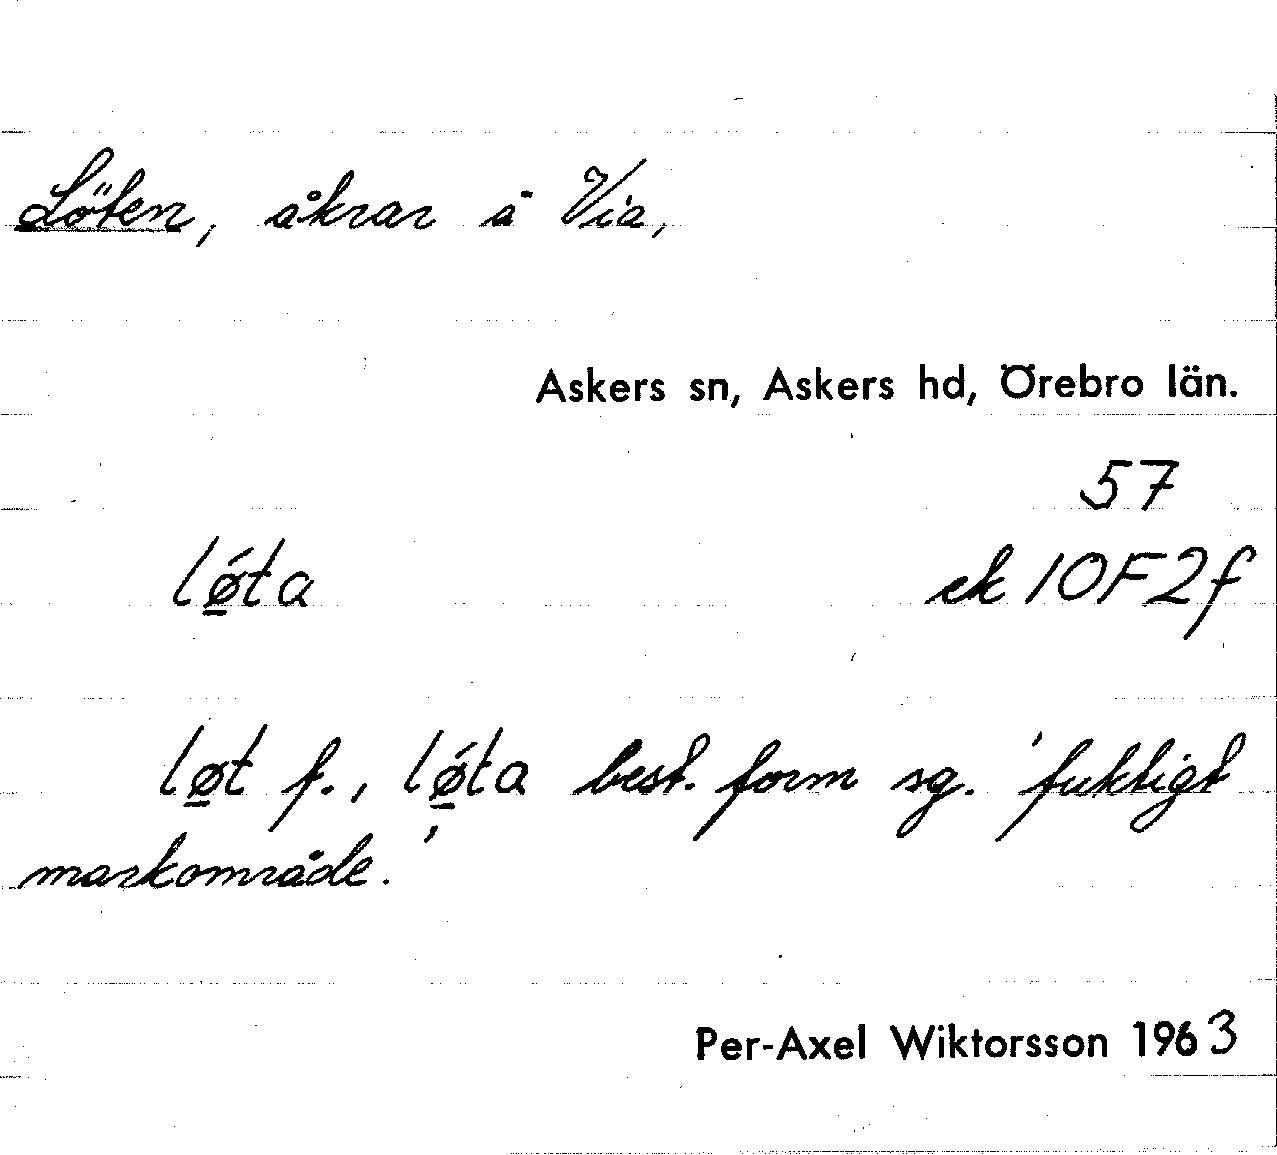 Löten, åkrar å Via,
Askers sn, Askers hd, Örebro län.
57
lǿ̲ta ek 10F2f
lø̲t f., lǿ̲ta best. form sg. 'fuktigt
markområde.'
Per-Axel Wiktorsson 1963